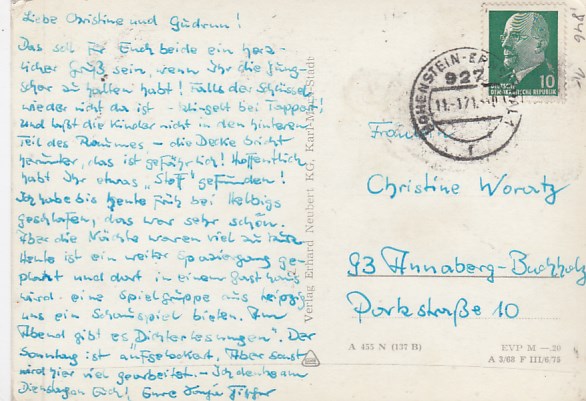 Liebe Christine und Gudrun!
Das soll für Euch beide ein herz-
licher Gruß sein, wenn Ihr die Jung-
schar zu halten habt! Falls der Schlüssel
wieder nicht da ist - klingelt bei Tappert!
Und laßt die Kinder nicht in den hinteren
Teil des Raumes - die Decke bricht
herunter, das ist gefährlich! Hoffentlich
habt Ihr etwas "Stoff" gefunden!
Ich habe bis heute früh bei Helbigs
geschlafen, das war sehr schön.
Aber die Nächte waren viel zu kurz.
Heute ist ein weiter Spaziergang ge-
plant und dort in einem Gasthaus
wird eine Spielgruppe aus Leipzig
uns ein Schauspiel bieten. Am
Abend gibt es "Dichterlesungen". Der
Sonntag ist aufgelockert, aber sonst
wird hier viel gearbeitet. - Ich denke am
Dienstag an Euch! Eure
Verlag Erhard Neubert KG, Karl-Marx-Stadt
HOHENSTEIN-ER
927
11.-1.71
10
DEUTSCHE DEMOKRATISCHE REPUBLIK
Christine Woratz
93 Annaberg-Buchholz
Parkstraße 10
A 455 N (137 B)
EVP M -.20
A 3/68 F III/6/75